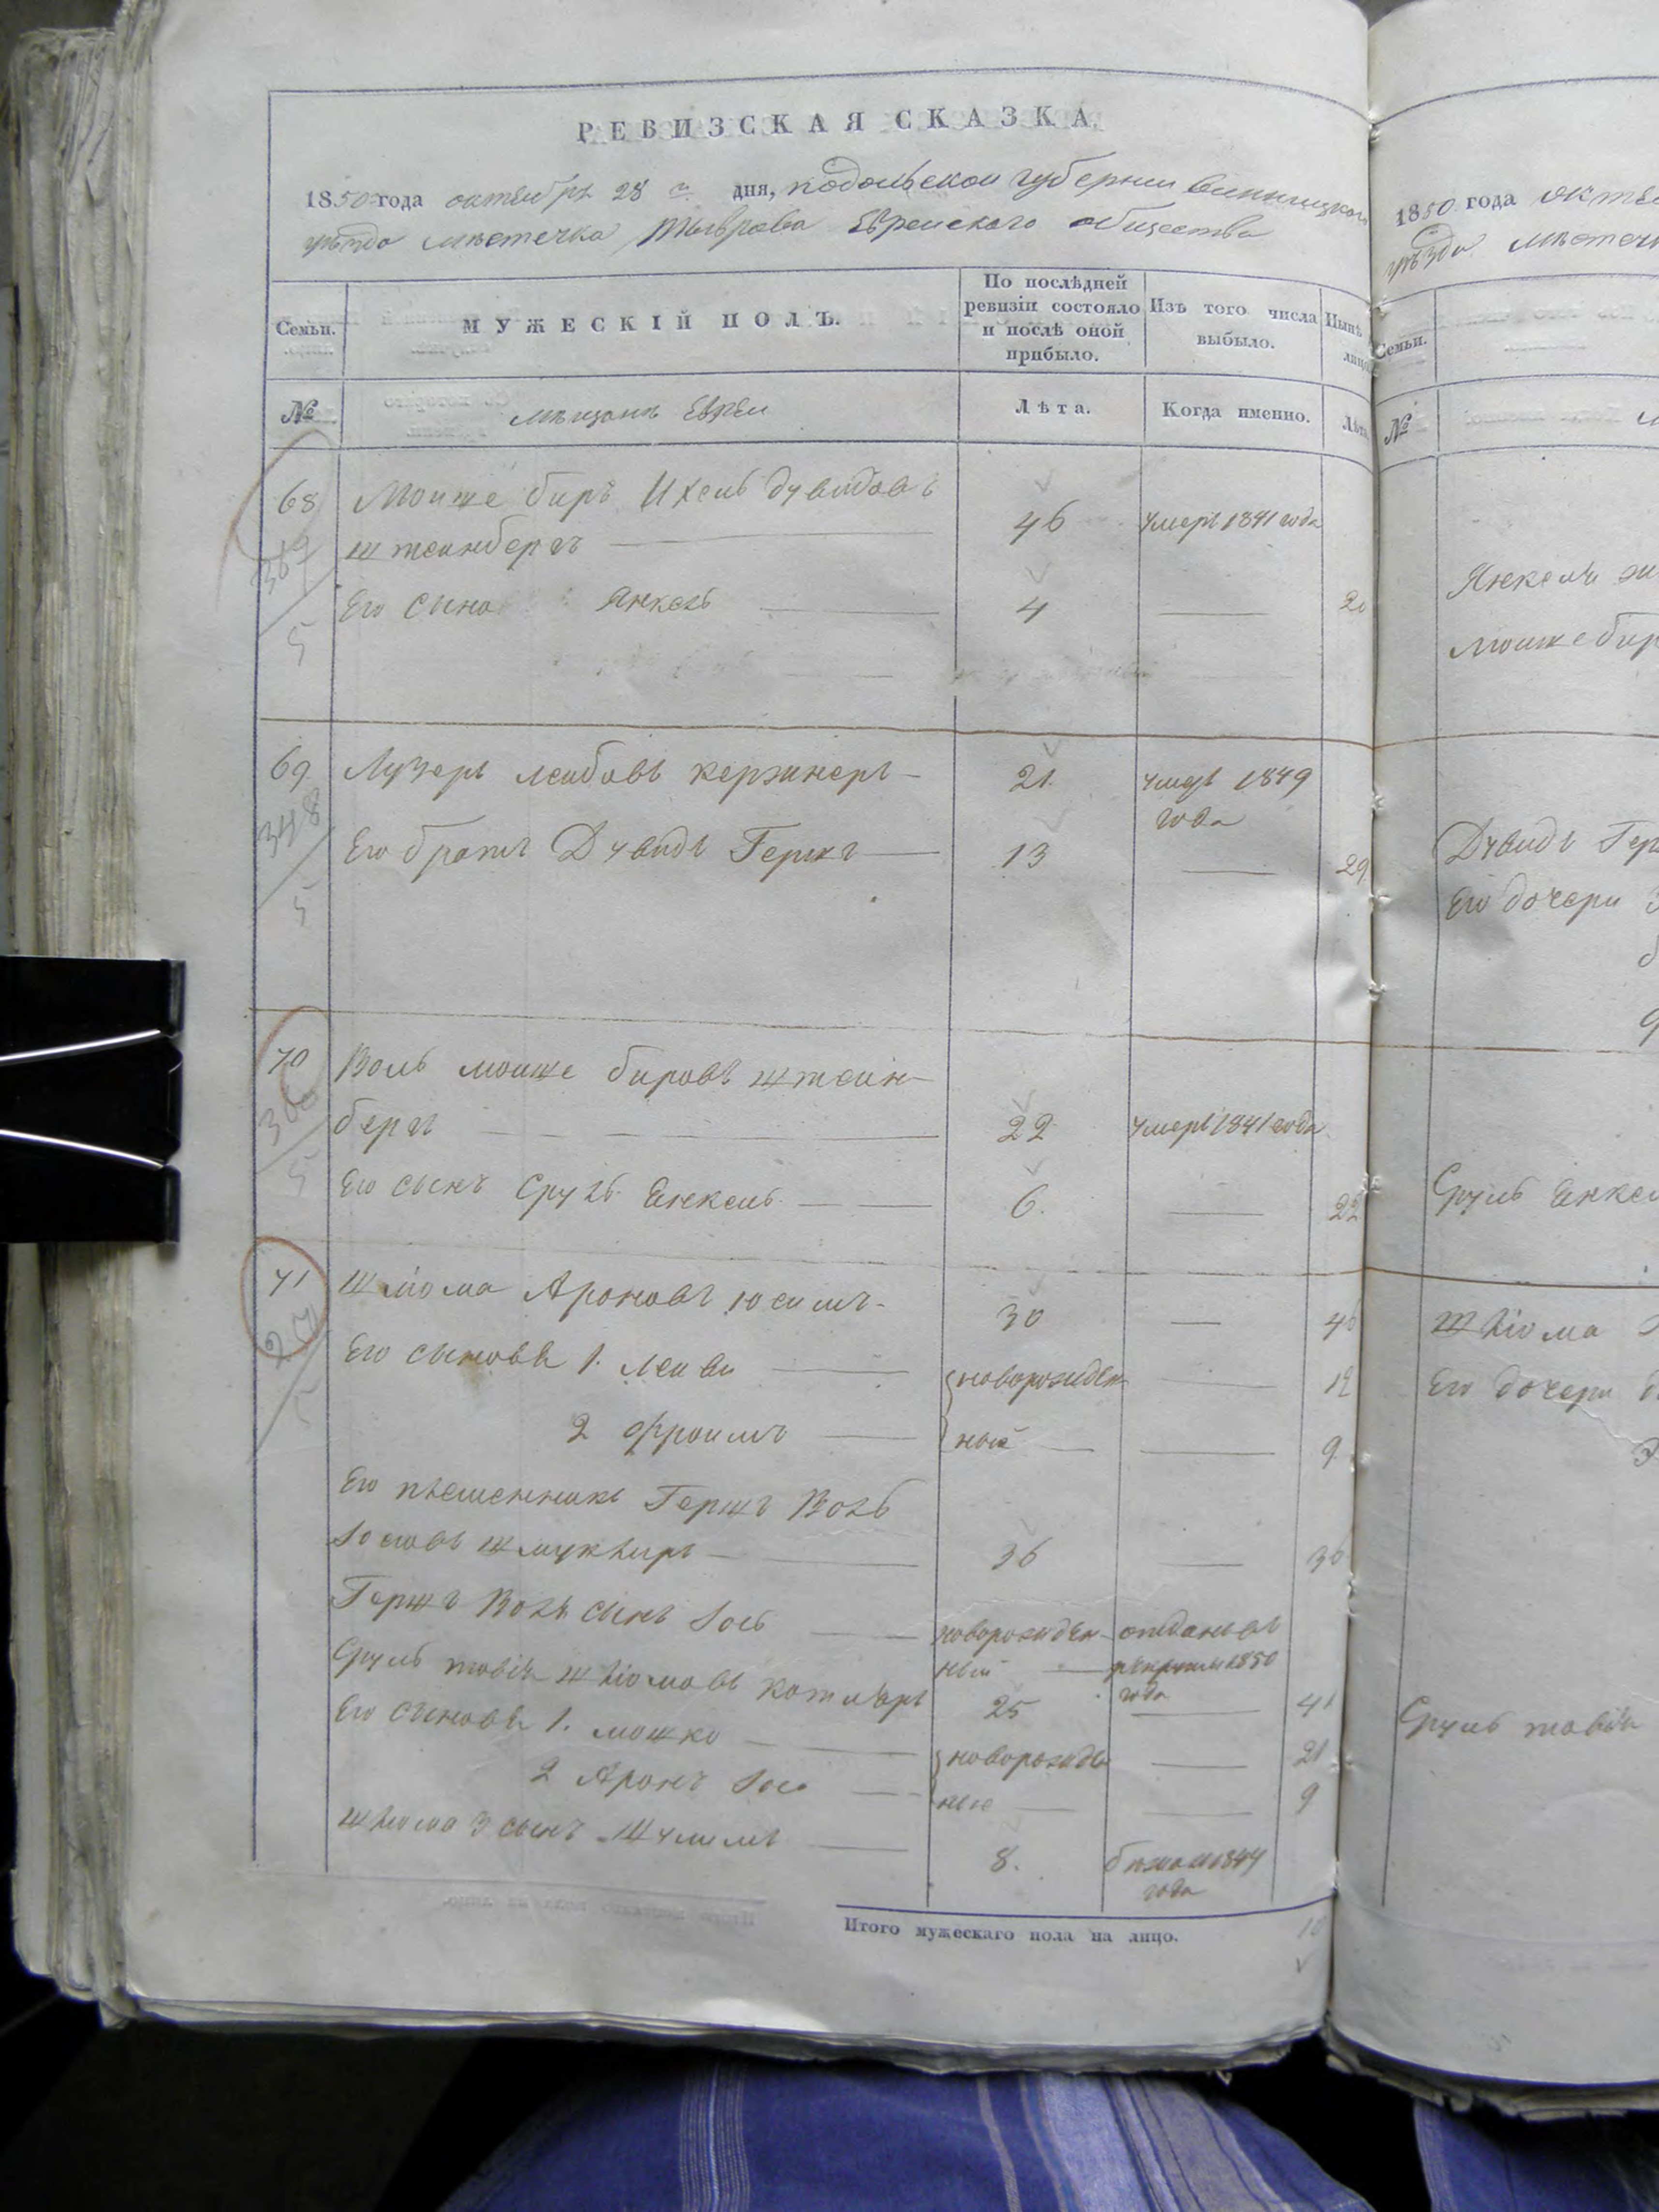 РЕВИЗСКАЯ СКАЗКА.
1850 года октября 28 дня, подольской губернии винницкого
уезда местечка Тыврова Еврейского общества
Семьи.
МУЖЕСКІЙ ПОЛЪ.
По послѣдней ревизіи состояло и послѣ оной прибыло.
Изъ того числа выбыло.
Нынѣ
№
мещане Евреи
Лѣта.
Когда именно.
Лѣта
68 Мошко Беръ Ихель дувидовъ
штейнбергъ 46 умеръ 1841 года
Его сынъ Янкель 4 20
69 Лузеръ лейбовъ кержнеръ 21. умеръ 1849
года
Его братъ Дувидъ Гершъ 13 29
70 Воль мошко беровъ штейн
бергъ 22 умеръ 1841 года
Его сынъ Сруль Янкель 6. 22
71 Шлiома Ароновъ юсимъ 30 46
Его сыновья 1. лейви новорожден 12
2 Фроимъ ный 9
Его племенникъ Гершъ Воль
Iосiовъ шмуклиръ 36
Гершъ Воль сынъ Iось новорожден отданъ въ
ный рекруты 1850
года
Сруль товiя шлiомовъ котляръ 25 41
Его сыновья 1. мошко новорожде 21
2 Аронъ Iось ные 9
Шлiома 3 сынъ Шулимъ 8. бежал 1844
года
Итого мужескаго пола на лицо. 10
1850 года
уезда
Семьи.
№
Янкеля
мошко бер
Дувидъ Гер
Его дочери
Сруль Янкел
Шлiома
Его дочери
Сруль товiя